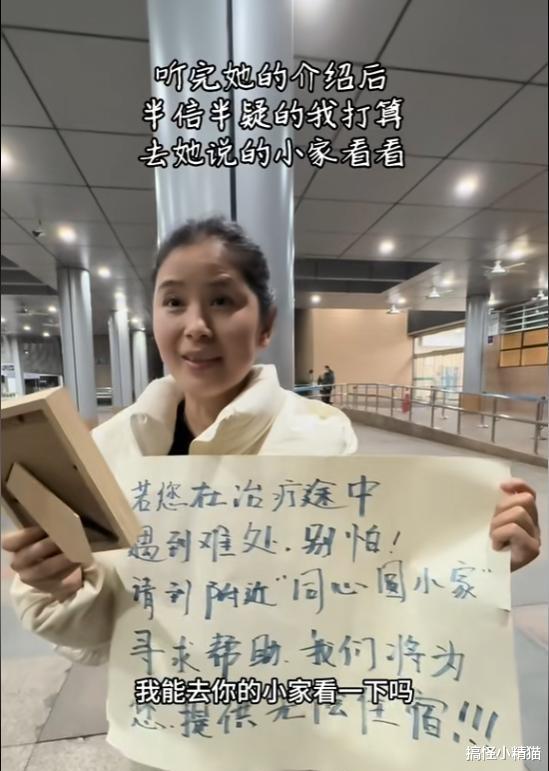 听完她的介绍后
半倍半疑的我打算
去她说的小家看看
若您在治疗途中
遇到难处、别怕!
请到附近"同心圆小家"
寻求帮助、我们将为
我能去你的小家看一下吗
您提供无住宿!!!
搞怪小精猫